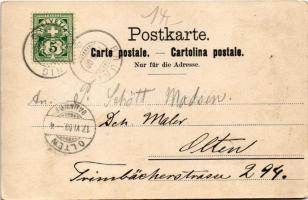 14.
Postkarte.
Carte postale. — Cartolina postale.
Nur für die Adresse.
HELVETIA
5
An. P. Schött Madsen.
Dek. Maler
Olten
Trimbacherstrasse 294.
OLTEN